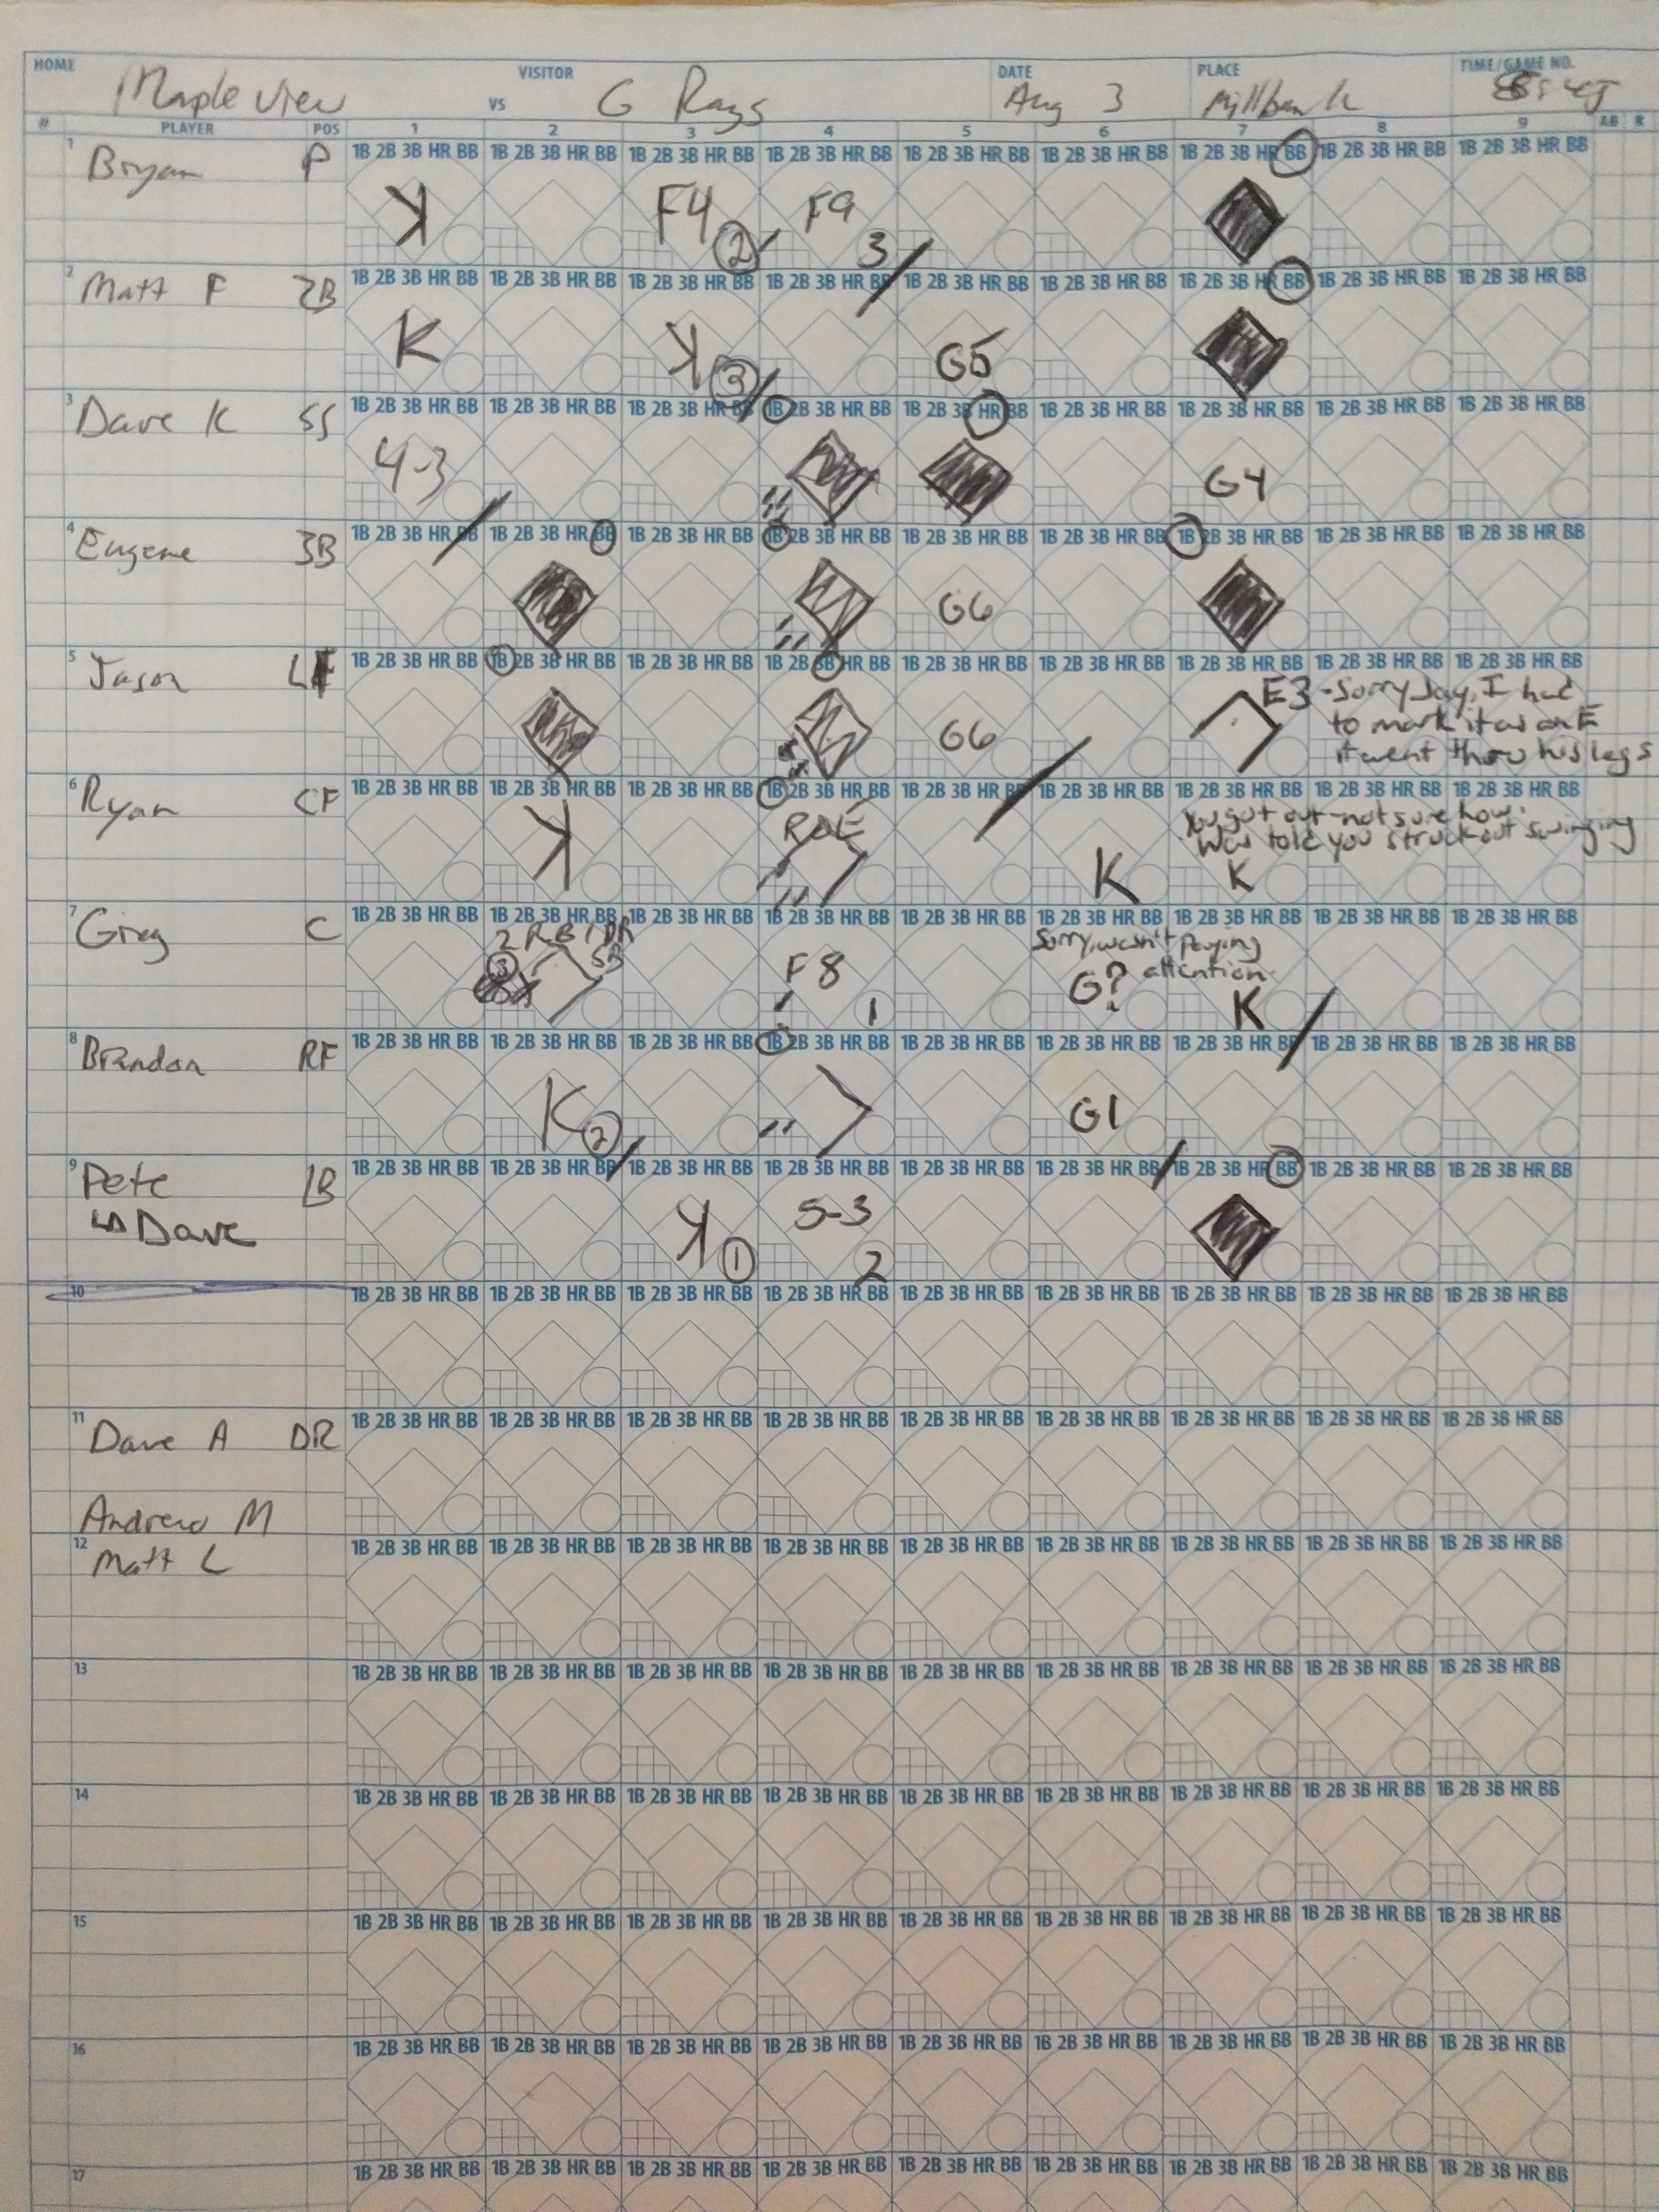 HOME Maple View VISITOR VS G Rays DATE Aug 3 PLACE Millbank TIME/GAME NO.
# PLAYER POS 1 2 3 4 5 6 7 8 9 AB R
1 Bryan P
1B 2B 3B HR BB 1B 2B 3B HR BB 1B 2B 3B HR BB 1B 2B 3B HR BB 1B 2B 3B HR BB 1B 2B 3B HR BB 1B 2B 3B HR BB 1B 2B 3B HR BB 1B 2B 3B HR BB
K F4 2 F9 3
2 Matt F 2B
1B 2B 3B HR BB 1B 2B 3B HR BB 1B 2B 3B HR BB 1B 2B 3B HR BB 1B 2B 3B HR BB 1B 2B 3B HR BB 1B 2B 3B HR BB 1B 2B 3B HR BB 1B 2B 3B HR BB
K K 3 G5
3 Dave K SS
1B 2B 3B HR BB 1B 2B 3B HR BB 1B 2B 3B HR BB 1B 2B 3B HR BB 1B 2B 3B HR BB 1B 2B 3B HR BB 1B 2B 3B HR BB 1B 2B 3B HR BB 1B 2B 3B HR BB
4-3 G4
4 Eugene 3B
1B 2B 3B HR BB 1B 2B 3B HR BB 1B 2B 3B HR BB 1B 2B 3B HR BB 1B 2B 3B HR BB 1B 2B 3B HR BB 1B 2B 3B HR BB 1B 2B 3B HR BB 1B 2B 3B HR BB
G6
5 Jason LF
1B 2B 3B HR BB 1B 2B 3B HR BB 1B 2B 3B HR BB 1B 2B 3B HR BB 1B 2B 3B HR BB 1B 2B 3B HR BB 1B 2B 3B HR BB 1B 2B 3B HR BB 1B 2B 3B HR BB
G6 E3 - Sorry Jay, I had
to mark it as an E
it went throu his legs
6 Ryan CF
1B 2B 3B HR BB 1B 2B 3B HR BB 1B 2B 3B HR BB 1B 2B 3B HR BB 1B 2B 3B HR BB 1B 2B 3B HR BB 1B 2B 3B HR BB 1B 2B 3B HR BB 1B 2B 3B HR BB
You got out - not sure how.
Was told you struck out swinging
K ROE K K
7 Greg C
1B 2B 3B HR BB 1B 2B 3B HR BB 1B 2B 3B HR BB 1B 2B 3B HR BB 1B 2B 3B HR BB 1B 2B 3B HR BB 1B 2B 3B HR BB 1B 2B 3B HR BB 1B 2B 3B HR BB
2 RBI DR
SB
3
F8 1
Sorry, wasn't paying
attention
G? K
8 Brandon RF
1B 2B 3B HR BB 1B 2B 3B HR BB 1B 2B 3B HR BB 1B 2B 3B HR BB 1B 2B 3B HR BB 1B 2B 3B HR BB 1B 2B 3B HR BB 1B 2B 3B HR BB 1B 2B 3B HR BB
K 2 G1
9 Pete 1B
1B 2B 3B HR BB 1B 2B 3B HR BB 1B 2B 3B HR BB 1B 2B 3B HR BB 1B 2B 3B HR BB 1B 2B 3B HR BB 1B 2B 3B HR BB 1B 2B 3B HR BB 1B 2B 3B HR BB
Dave K 1 5-3 2
10
1B 2B 3B HR BB 1B 2B 3B HR BB 1B 2B 3B HR BB 1B 2B 3B HR BB 1B 2B 3B HR BB 1B 2B 3B HR BB 1B 2B 3B HR BB 1B 2B 3B HR BB 1B 2B 3B HR BB
11 Dave A DR
1B 2B 3B HR BB 1B 2B 3B HR BB 1B 2B 3B HR BB 1B 2B 3B HR BB 1B 2B 3B HR BB 1B 2B 3B HR BB 1B 2B 3B HR BB 1B 2B 3B HR BB 1B 2B 3B HR BB
Andrew M
12 Matt L
1B 2B 3B HR BB 1B 2B 3B HR BB 1B 2B 3B HR BB 1B 2B 3B HR BB 1B 2B 3B HR BB 1B 2B 3B HR BB 1B 2B 3B HR BB 1B 2B 3B HR BB 1B 2B 3B HR BB
13
1B 2B 3B HR BB 1B 2B 3B HR BB 1B 2B 3B HR BB 1B 2B 3B HR BB 1B 2B 3B HR BB 1B 2B 3B HR BB 1B 2B 3B HR BB 1B 2B 3B HR BB 1B 2B 3B HR BB
14
1B 2B 3B HR BB 1B 2B 3B HR BB 1B 2B 3B HR BB 1B 2B 3B HR BB 1B 2B 3B HR BB 1B 2B 3B HR BB 1B 2B 3B HR BB 1B 2B 3B HR BB 1B 2B 3B HR BB
15
1B 2B 3B HR BB 1B 2B 3B HR BB 1B 2B 3B HR BB 1B 2B 3B HR BB 1B 2B 3B HR BB 1B 2B 3B HR BB 1B 2B 3B HR BB 1B 2B 3B HR BB 1B 2B 3B HR BB
16
1B 2B 3B HR BB 1B 2B 3B HR BB 1B 2B 3B HR BB 1B 2B 3B HR BB 1B 2B 3B HR BB 1B 2B 3B HR BB 1B 2B 3B HR BB 1B 2B 3B HR BB 1B 2B 3B HR BB
17
1B 2B 3B HR BB 1B 2B 3B HR BB 1B 2B 3B HR BB 1B 2B 3B HR BB 1B 2B 3B HR BB 1B 2B 3B HR BB 1B 2B 3B HR BB 1B 2B 3B HR BB 1B 2B 3B HR BB